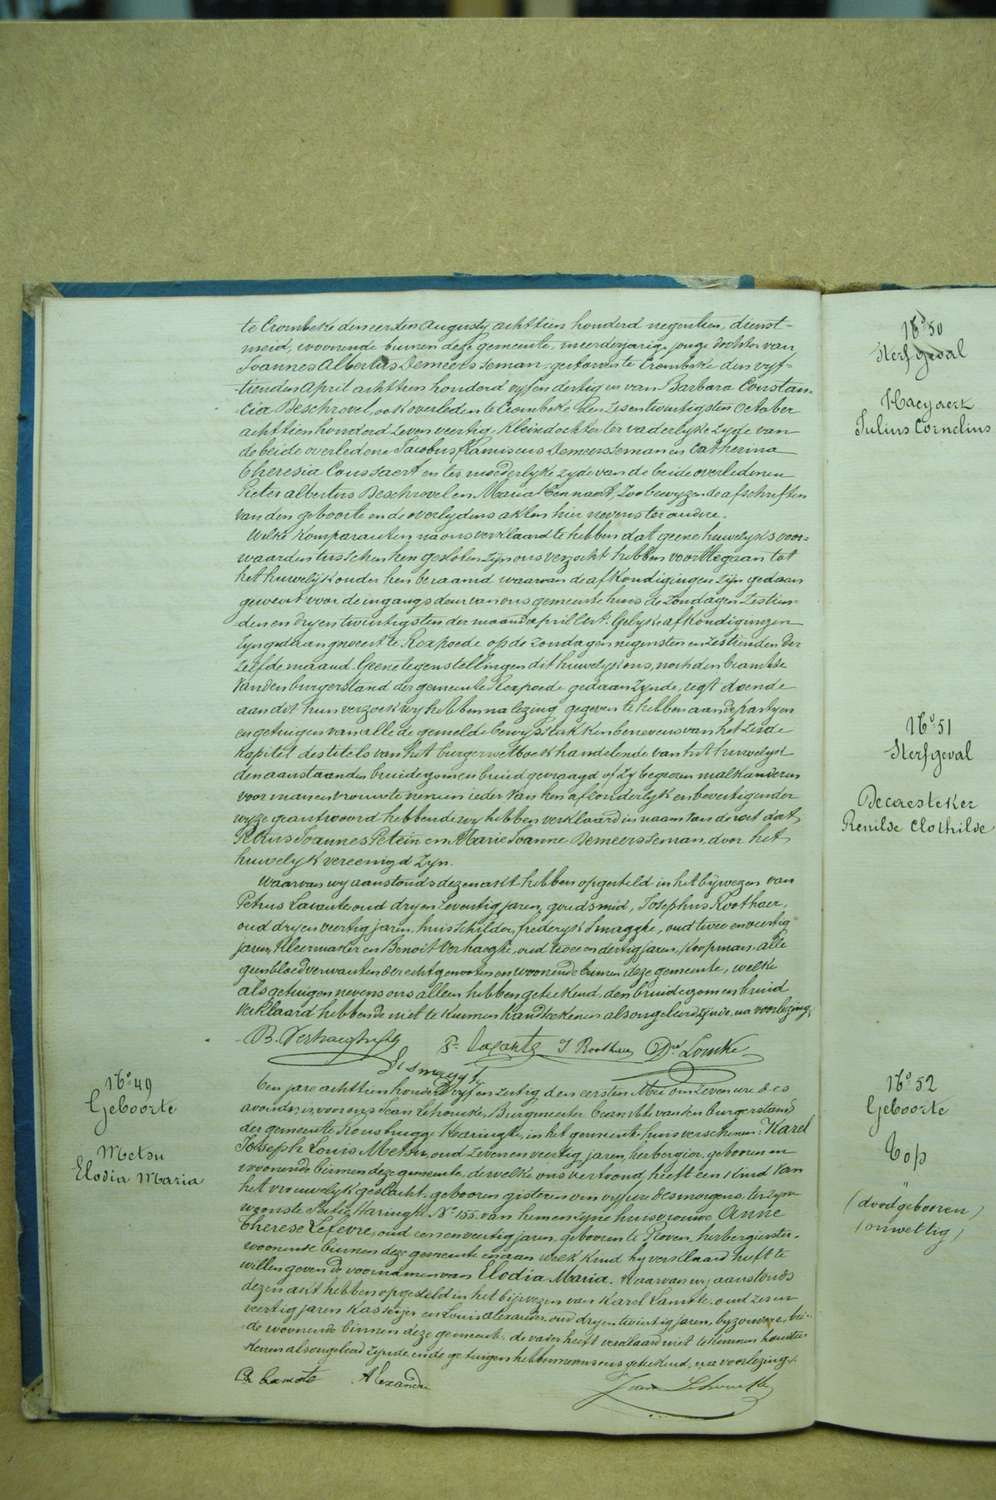 te Crombeke den eersten Augusty achttien honderd negentien, dienst-
meid, woonende binnen deze gemeente, meerderjarige jonge dochter van
Joannes Albertus Demeersseman, geboren te Crombeke den vyf-
tienden April achttien honderd vyf en dertig en van Barbara Constan-
cia Beschrovel, ook overleden te Crombeke den zes en twintigsten October
achttien honderd zeven veertig, kleindochter ter vaderlyke zyde van
de beide overledene Jacobus Franciscus Demeersseman en Catherina
Theresia Coussaert en ter moederlyke zyde van de beide overledenen
Pieter Albertus Beschrovel en Maria Hennaert, zoo bewyzen de afschriften
van den geboorte en de overlydens akten hier nevens ter oudere.
Welke komparanten na ons verklaard te hebben dat geene huwelyks voor-
waarden tusschen hen gesloten zyn ons verzocht hebben voorttegaan tot
het huwelyk onder hen beraamd waarvan de afkondigingen zyn gedaan
geweest voor de ingangs deur van ons gemeente huis de zondagen zestien
den en dry en twintigsten der maand april lest. Gelyke afkondigingen
zyn gedaan geweest te Rexpoede op de zondagen negensten en zestienden der
zelfde maand. Geene tegenstellingen dit huwelyk ons, noch den beambte
van den burgerstand der gemeente Rexpoede gedaan zynde, regt doende
aan dit hun verzoek wy hebben na lezing gegeven te hebben aan de partyen
en getuigen van alle de gemelde bewysstukken benevens van het zesde
kapitel des titels van het burger wetboek handelende van het huwelyk
den aanstaanden bruidegom en bruid gevraagd of zy begeeren malkanderen
voor man en vrouw te nemen ieder van hen afzonderlyk en bevestigender
wyze geantwoord hebbende wy hebben verklaard in naam van de wet dat
Petrus Joannes Petein en Marie Joanne Demeersseman door het
huwelyk vereenigd zyn.
Waarvan wy aanstonds dezen akt hebben opgesteld in het bywezen van
Petrus Lavaute oud dry en zeventig jaren, goudsmid, Josephus Roothaer,
oud dry en veertig jaren, huisschilder, frederyk Smagghe, oud twee en veertig
jaren, Kleermaker en Benoit Verhaeghe, oud twee en dertig jaren, Koopman, alle
geen bloedverwanten der echtgenooten en woonende binnen deze gemeente, welke
als getuigen nevens ons alleen hebben geteekend, den bruidegom en bruid
verklaard hebbende niet te kunnen handteekenen als ongeleerd zynde, na voorlezing.
B. Verhaeghe P. J Roothaer
F. Smagghe
N.° 49
Geboorte
Metsu
Elodia Maria
Ten jare achttien honderd vyf en zestig den eersten Mei om zeven ure des
avonds, is, voor ons Jean Schoucke, Burgmeester beambte van den burgerstand
der gemeente Rousbrugge Haringhe, in het gemeente huis verschenen: Karel
Joseph Louis Metsu, oud zeven en veertig jaren, herbergier, geboren en
woonende binnen deze gemeente, de welke ons vertoond heeft een kind van
het vrouwelyk geslacht, gebooren gisteren om vyf ure des morgens, ter zyne
woonste Haringhe N.° 155, van hem en zyne huisvrouwe Anne
Therese Lefevre, oud een en veertig jaren, geboren te Proven, herbergierster,
woonende binnen deze gemeente, en aan welk kind hy verklaard heeft te
willen geven de voornamen van Elodia Maria. Waarvan wy aanstonds
dezen akt hebben opgesteld in het bywezen van Karel Lamote, oud zes en
veertig jaren Kasseyer en Louis Alexander, oud dry en twintig jaren, byzondere, bei-
de woonende binnen deze gemeente. de vader heeft verklaard niet te kunnen handtee-
kenen als ongeleerd zynde, en de getuigen hebben nevens ons geteekend, na voorlezing.
Ch Lamote Alexandre
Jean Schoucke
N.° 50
Sterfgeval
Haeyaert
Julius Cornelius
N.° 51
Sterfgeval
Decaesteker
Renilde Clothilde
N.° 52
Geboorte
Top
(doodgebooren)
(onwettig)